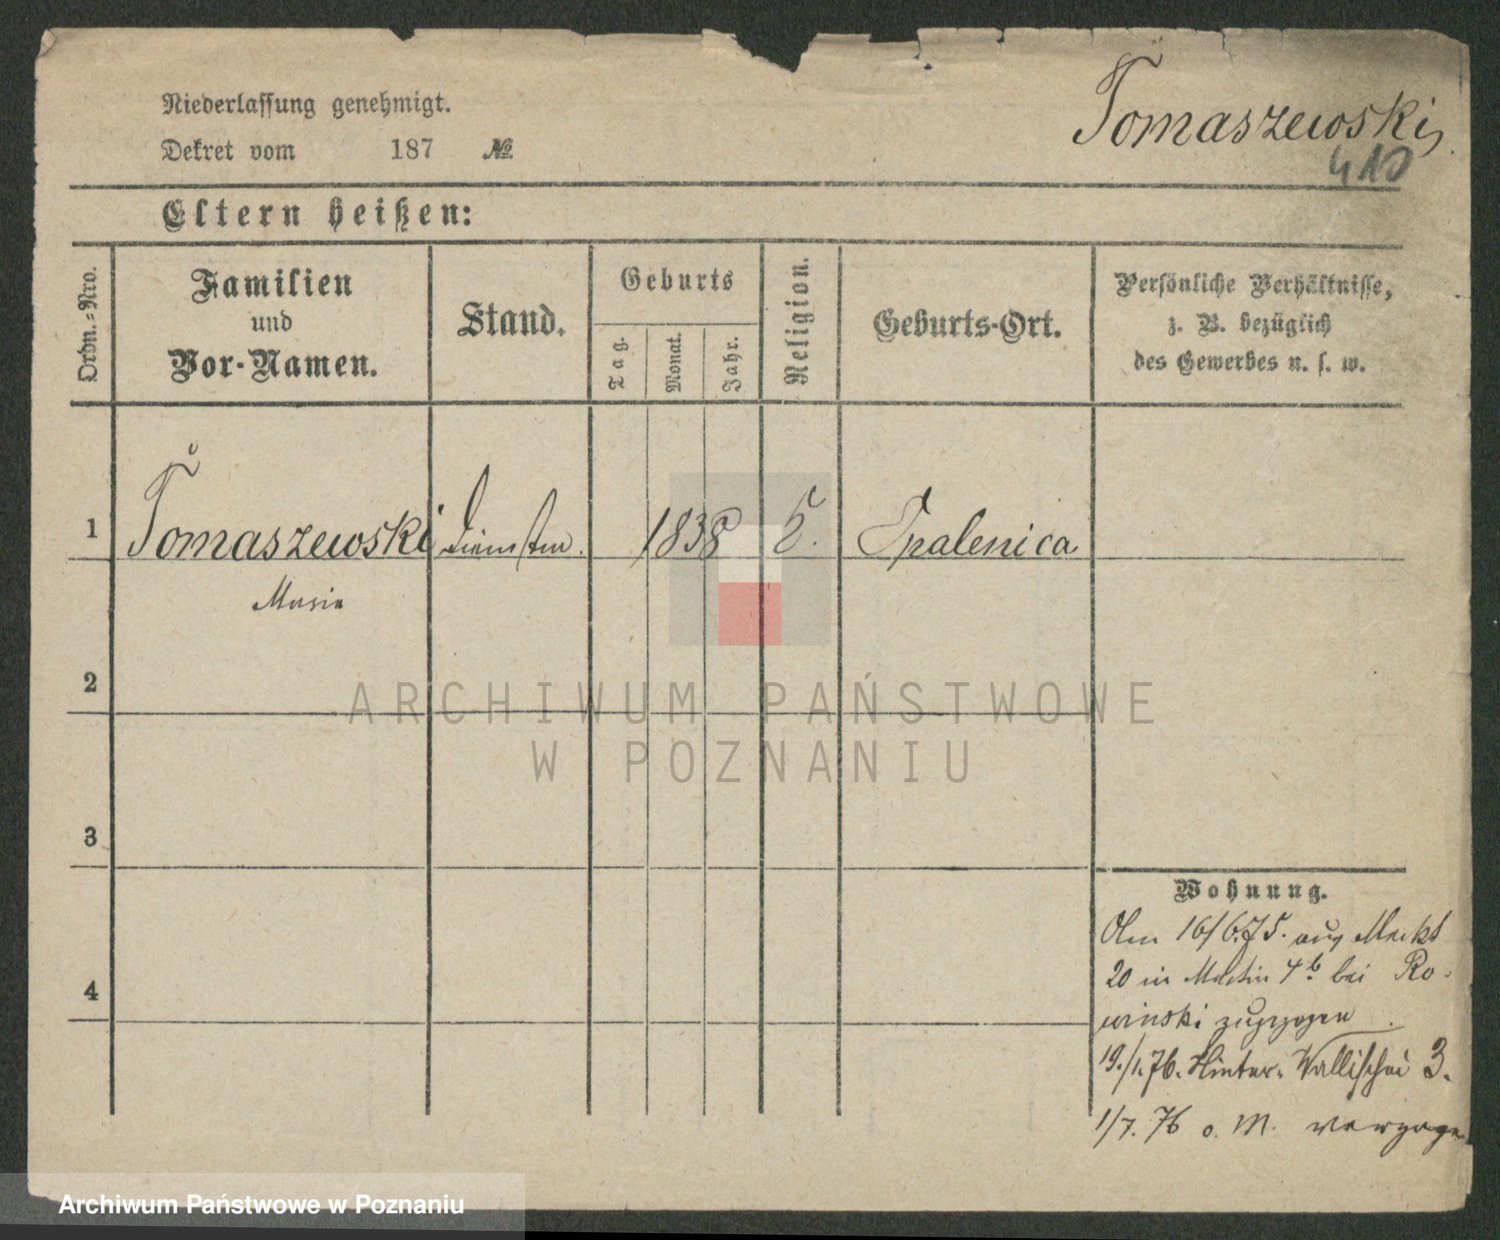 Niederlassung genehmigt.
Dekret vom 187 №
Tomaszewski,
410
Eltern heißen:
Ordn.-Nro.
Familien
und
Vor-Namen.
Stand.
Geburts
Tag.
Monat.
Jahr.
Religion.
Geburts-Ort.
Persönliche Verhältnisse,
z. B. bezüglich
des Gewerbes u. s. w.
1 Tomaszewski 1838 Opalenica
2
3
4
Wohnung.
16/6.75. aus Markt
20 in Martin 4b bei Ro-
winski zugezogen
19./1.76. Hinter-Wallischei 3.
1/7.76 o. M. verzogen
ARCHIWUM PAŃSTWOWE
W POZNANIU
Archiwum Państwowe w Poznaniu